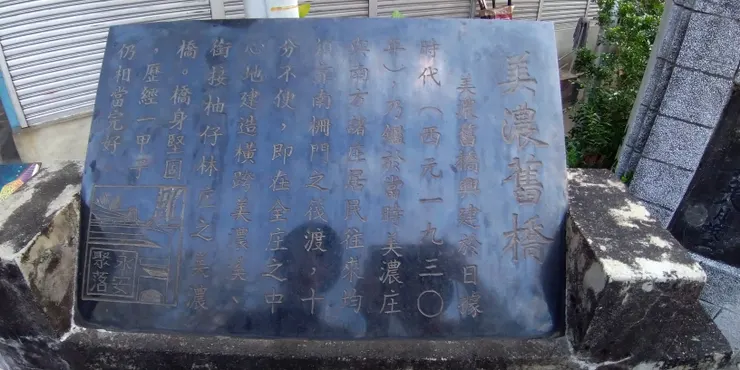 美濃舊橋
美濃舊橋興建於日據
時代（西元一九三〇
年），乃鑑於當時美濃庄
與南方諸庄居民往來均
須靠南柵門之筏渡，十
分不便，即在全庄之中
心地建造橫跨美濃溪、
銜接柚仔林庄之美濃
橋。橋身堅固
，歷經一甲子
仍相當完好
永安
聚落